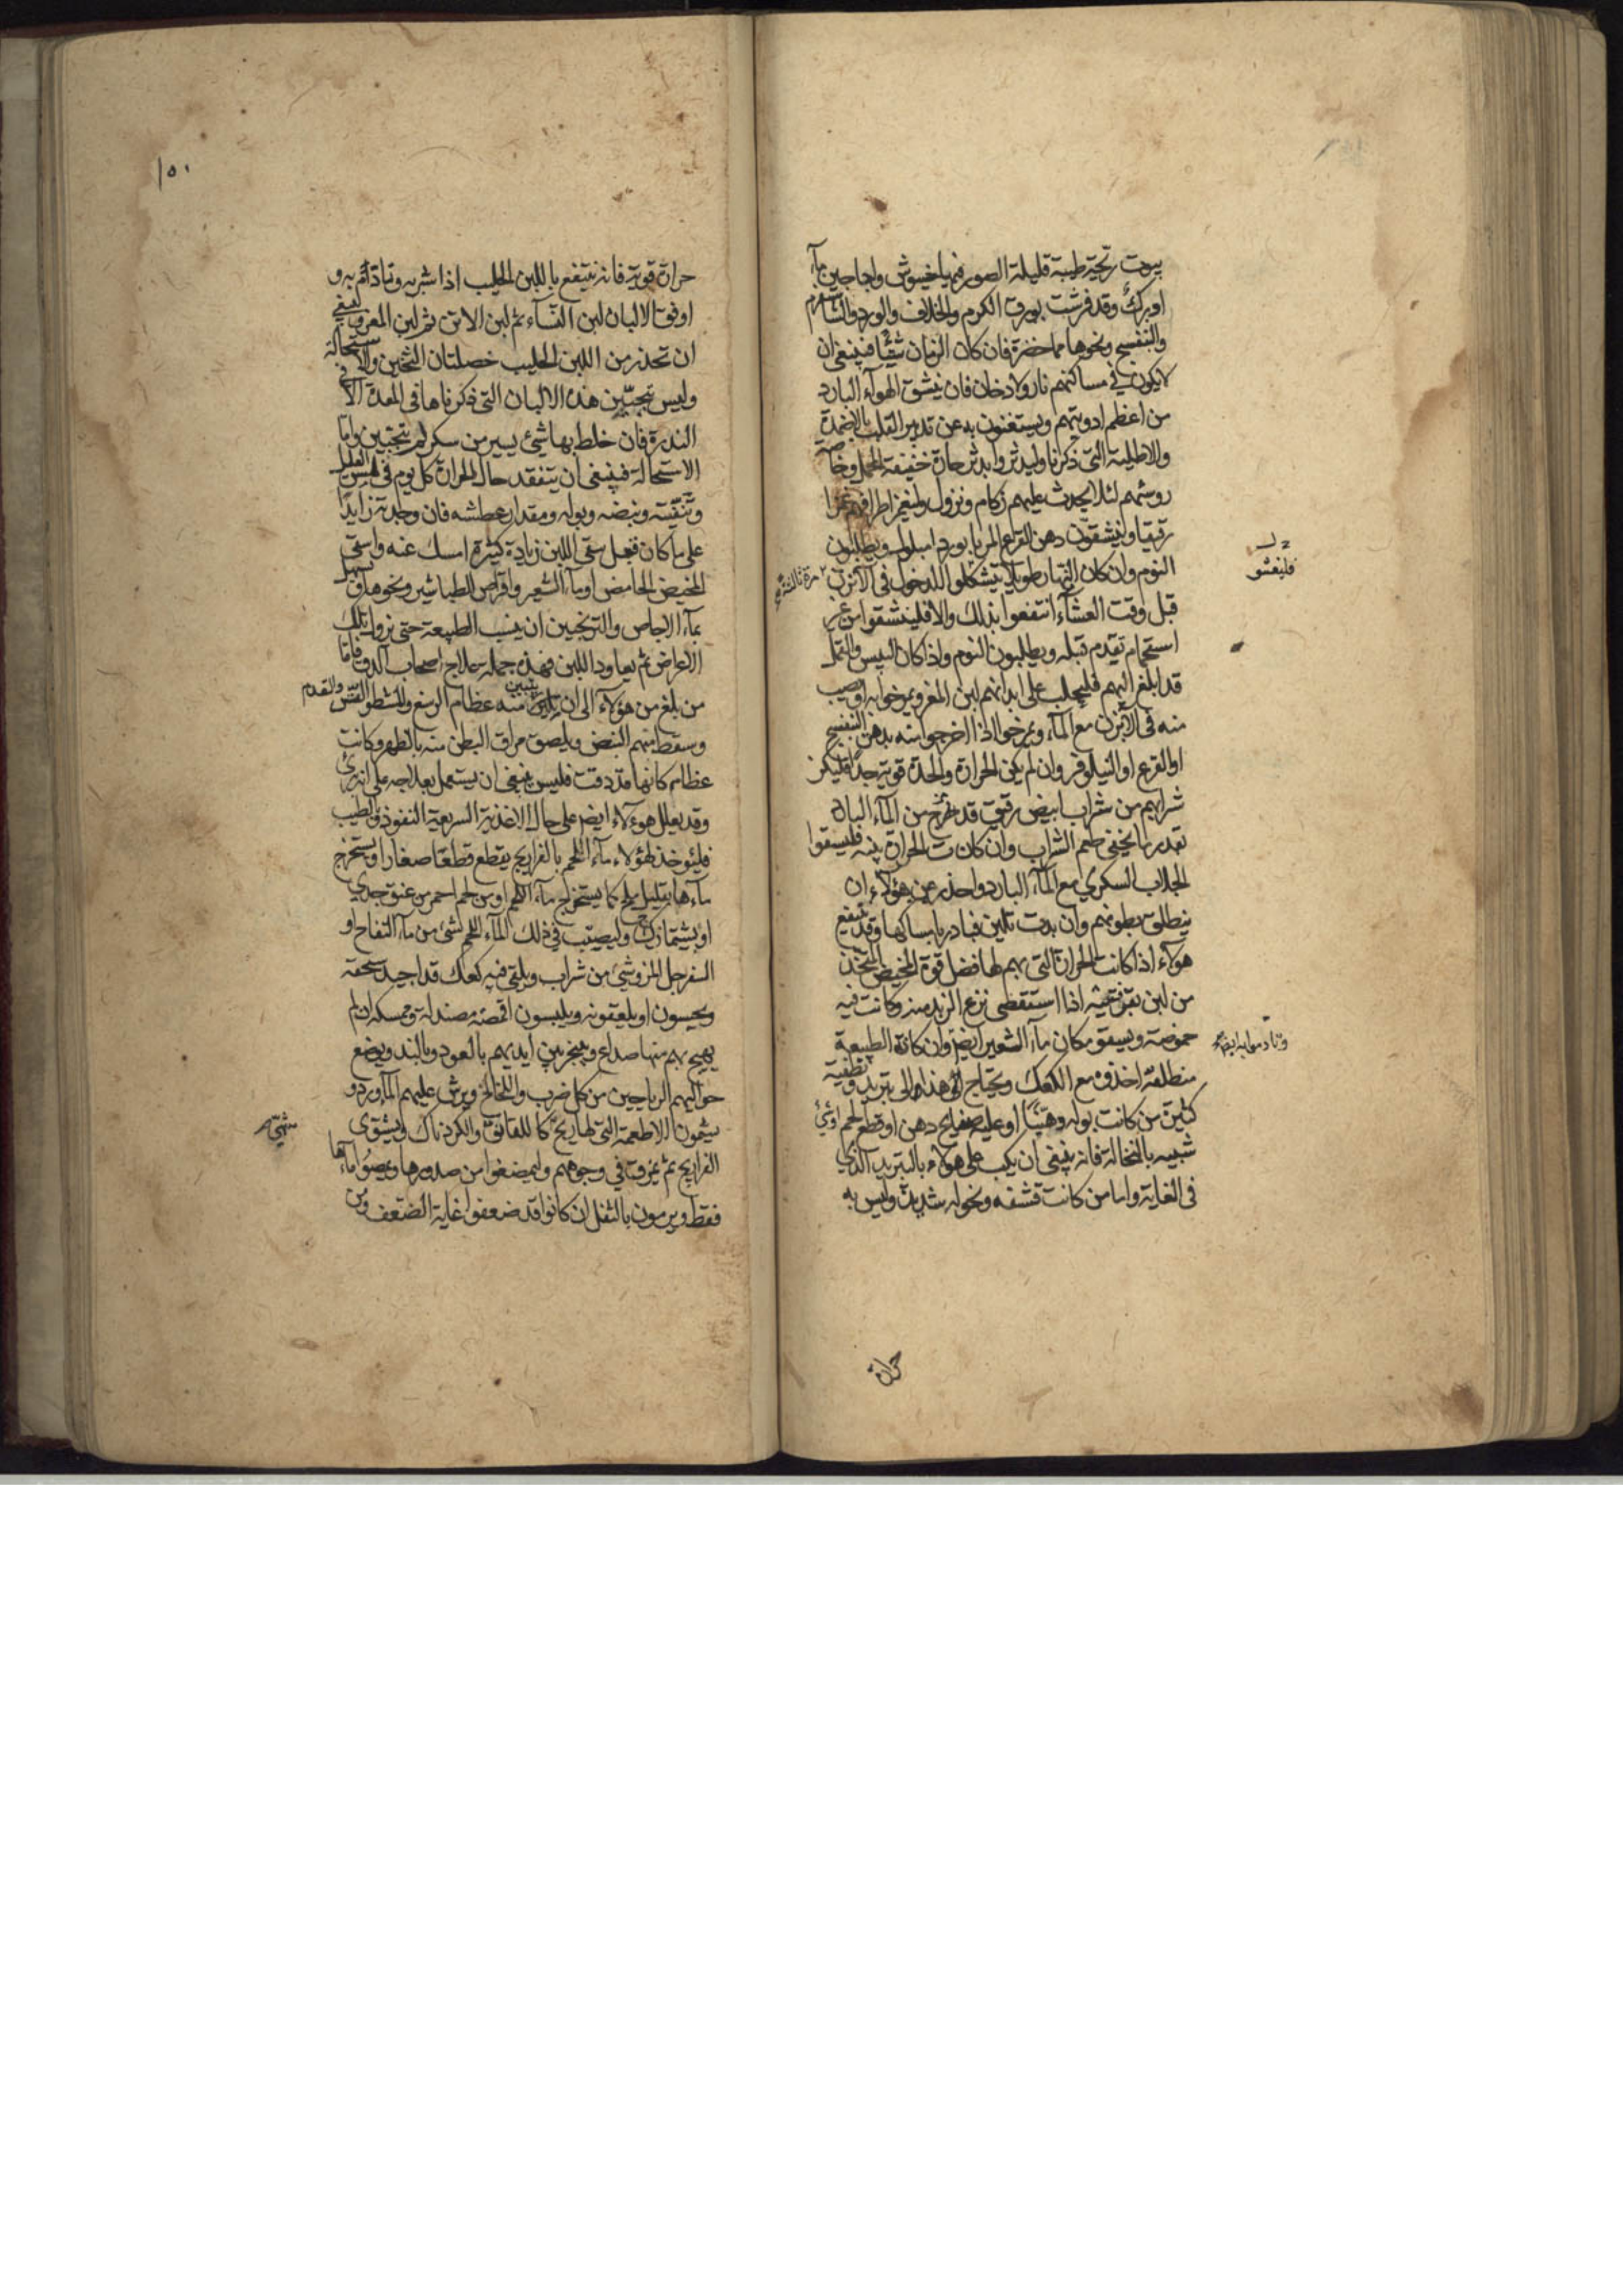 بيوت ريحية طيبة قليلة الصور فيها خيوش واجاجين ماء
او برك وقد فرشت بورق الكرم والخلاف والورد والشاهسفرم
والبنفسج ونحوها مما حضر فان كان الزمان شتيا فينبغي ان
لا يكون في مساكنهم نار ولا دخان فان نشق الهواء البارد
من اعظم ادويتهم ويستغنون به عن تدبير القلب بالاضمدة
والاطلية التي ذكرنا وليدثروا بدثر حارة خفيفة المحمل وخاصة
روسهم لئلا يحدث عليهم زكام ونزول وليغمز اطرافهم غمزا
رقيقا ولينشقون دهن القرع المربا بورد امبلول ويطلبون
النوم وان كان النهار طويلا يتشكلوا للدخول في الابزن
قبل وقت العشاء انتفعوا بذلك والا فلينتشقوا من غير
استحمام تقدم قبله ويطلبون النوم واذا كان اليبس والنحل
قد ابلغ اليهم فليحلب على ابدانهم لبن المعز ويمرخوا به او يصب
منه في الابزن مع الماء ويمرخوا اذا اخرجوا منه بدهن البنفسج
او القرع او النيلوفر وان لم يكن الحرارة والحدة قوية جدا فليكن
شرابهم من شراب ابيض رقيق قد مزج من الماء البارد
بقدر ما يخفى طعم الشراب وان كانت الحرارة بينه فليسقوا
الجلاب السكري مع الماء البارد واحذر من هؤلاء ان
ينطلق بطونهم وان بدت تلين فبادر بامساكها وقد ينتفع
هولاء اذا كانت الحرارة التي بهم لها فضل قوة المخيض المتخذ
من لبن بقر فتية اذا استقصى نزع الزبد منه وكانت فيه
حموضة ويسقو مكان ماء الشعير ايضا وان كانت الطبيعة
منطلقة اخذوه مع الكعك ويحتاج الى هذا والى تبريد وتطفية
كثير من كانت بوله دهنيا او عليه صفايح دهن او قطع لحم او شي
شبيه بالنخالة فانه ينبغي ان يكب على هولاء بالتبريد الذي
في الغاية واما من كانت قشفه ونحوله شديد وليس به
فليغشو
حرارة
١٥٠
حرارة قوية فانه ينتفع باللبن الحليب اذا شربه وتادم به و
اوفق الالبان لبن النساء ثم لبن الاتن ثم لبن المعز وينبغي
ان تحذر من اللبن الحليب خصلتان التجبن والاستحالة
وليس بتجبن هذه الالبان التي ذكرناها في المعدة الا في
الندرة فان خلط بها شئ يسير من سكر لم يتجبن واما
الاستحالة فينبغي ان يتفقد حال الحرارة كل يوم في لمس العليل
وتنفسه ونبضه وبوله ومقدار عطشه فان وجدته زايدا
على ما كان قبل سقي اللبن زيادة كثيرة امسك عنه واسقي
المخيض الحامض او ماء الشعير واقراص الطباشير ونحوها وتسهل
بماء الاجاص والترنجبين ان يبست الطبيعة حتى نزول تلك
الاعراض ثم يعاود اللبن فهذه جملة علاج اصحاب الدق فاما
من بلغ من هؤلاء الى ان يتبين منه عظام الرسغ والمشط والقدم
وسقط منهم النبض ويلصق مراق البطن منه بالظهر وكانت
عظام كانها قد دقت فليس ينبغي ان يستعمل بعلاجه على انه برئ
وقد يعلل هوءلاء ايضا على حال الاغذية السريعة النفوذ والطيب
فليؤخذ لهؤلاء ماء اللحم بالفراريج يقطع قطعا صغارا ويستخرج
ماءها بقليل ملح كما يستخرج ماء اللحم او من لحم احمر من عنق جدي
او بشتمازك وليصبب في ذلك الماء اللحم لشئ من ماء التفاح او
السفرجل المز وشئ من شراب ويلقى فيه كعك قد اجيد سحقه
ويحسون او يلعقونه ويلبسون اقمصة مصندلة وممسكة ان لم
يهيج بهم منها صداع ويبخر بين ايديهم بالعود وبالند ويوضع
حواليهم الرياحين من كل ضرب واللخالخ ويرش عليهم الماورد و
يشمون الاطعمة التي لها ريح كاللقانق والكردناك ويشوى
الفراريج ثم يمزق في وجوههم وليمضغوا من صدورها ويمصوا ماءها
فقط ويرمون بالثفل ان كانوا قد ضعفوا غاية الضعف ومن